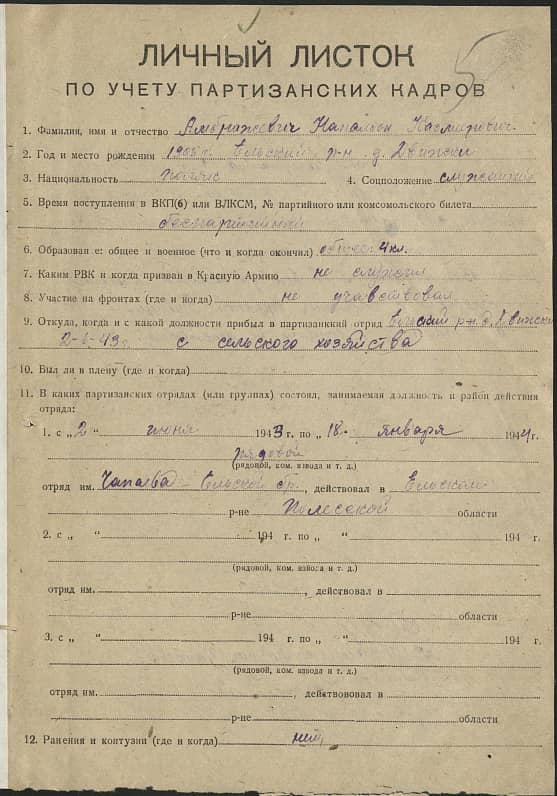 ЛИЧНЫЙ ЛИСТОК
ПО УЧЕТУ ПАРТИЗАНСКИХ КАДРОВ
1. Фамилия, имя и отчество Амбражевич Напальон Казмирович
2. Год и место рождения 1905 г. Ельский р-н. д. Движки
3. Национальность поляк 4. Соцположение служащий
5. Время поступления в ВКП(б) или ВЛКСМ, № партийного или комсомольского билета
беспартийный
6. Образован е: общее и военное (что и когда окончил) общее: 4 кл.
7. Каким РВК и когда призван в Красную Армию не служил
8. Участие на фронтах (где и когда) не учавствовал
9. Откуда, когда и с какой должности прибыл в партизанкий отряд Ельский р-н д. Движки
2-6-43 г. с сельского хозяйства
10. Выл ли в плену (где и когда)
11. В каких партизанских отрядах (или группах) состоял, занимаемая должность и район действия
отряда:
1. с „2 “ июня 1943 г. по „18 “ января 1944 г.
рядовой
(рядовой, ком. взвода и т. д.)
отряд им. Чапаева - Ельской бр., действовал в Ельском
р-не Полесской области
2. с „ “ 194 г. по „ “ 194 г.
(рядовой, ком. взвода и т. д.)
отряд им. , действовал в
р-не области
3. с „ “ 194 г. по „ “ 194 г.
(рядовой, ком. взвода и т. д.)
отряд им. , действововал в
р-не области
12. Ранения и контузии (где и когда) нет